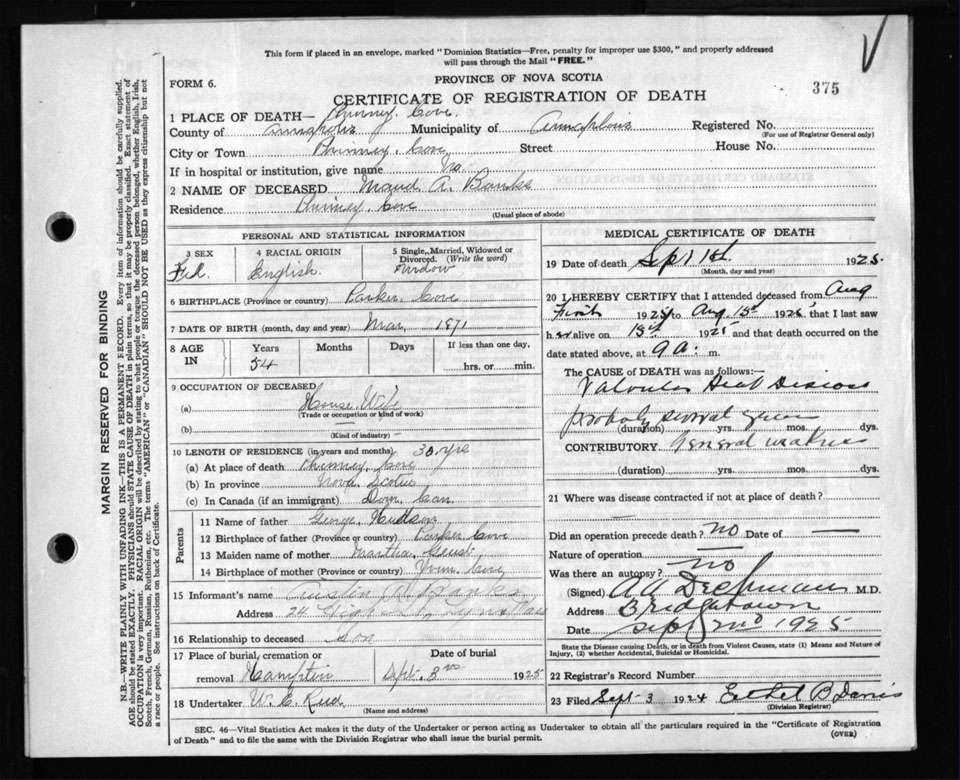 This form if placed in an envelope, marked "Dominion Statistics—Free, penalty for improper use $300," and properly addressed
will pass through the Mail "FREE."
FORM 6.
PROVINCE OF NOVA SCOTIA
375
CERTIFICATE OF REGISTRATION OF DEATH
1 PLACE OF DEATH— Phinney Cove.
County of Annapolis Municipality of Registered No.
(For use of Registrar General only)
City or Town Phinney Cove Street House No.
If in hospital or institution, give name No.
2 NAME OF DECEASED Maud A. Banks
Residence Phinney Cove
(Usual place of abode)
PERSONAL AND STATISTICAL INFORMATION
3 SEX 4 RACIAL ORIGIN 5 Single, Married, Widowed or Divorced. (Write the word)
English. Widow
6 BIRTHPLACE (Province or country) Parker Cove
7 DATE OF BIRTH (month, day and year) Mar. 1871
8 AGE IN Years Months Days If less than one day,
54 hrs. or min.
9 OCCUPATION OF DECEASED
(a) House Wife
(Trade or occupation or kind of work)
(b)
(Kind of industry)
10 LENGTH OF RESIDENCE (in years and months) 30 yrs
(a) At place of death Phinney Cove
(b) In province Nova Scotia
(c) In Canada (if an immigrant) Dom. Can.
Parents
11 Name of father George Hudson
12 Birthplace of father (Province or country) Parker Cove
13 Maiden name of mother Martha
14 Birthplace of mother (Province or country) Cove
15 Informant's name Austin Banks
Address 24 High St, Lynn Mass
16 Relationship to deceased son
17 Place of burial, cremation or removal Hampton Date of burial Sept. 3 1925
18 Undertaker W. C. Reed
(Name and address)
MEDICAL CERTIFICATE OF DEATH
19 Date of death Sept 1st 1925.
(Month, day and year)
20 I HEREBY CERTIFY that I attended deceased from Aug
First 1925 to Aug 15th 1925 that I last saw
her alive on 15th 1925 and that death occurred on
date stated above, at 9 a. m.
The CAUSE OF DEATH was as follows:—
Valvular Heart Disease
probably several years
(duration) yrs. mos. dys.
CONTRIBUTORY General weakness
(duration) yrs. mos. dys.
21 Where was disease contracted if not at place of death?
Did an operation precede death? no Date of
Nature of operation
Was there an autopsy? no
(Signed) M.D.
Address Bridgetown
Date Sept 2nd 1925
State the Disease causing Death, or in death from Violent Causes, state (1) Means and Nature of
Injury, (2) whether Accidental, Suicidal or Homicidal.
22 Registrar's Record Number
23 Filed Sept 3 1924 Ethel B Davis
(Division Registrar)
SEC. 46—Vital Statistics Act makes it the duty of the Undertaker or person acting as Undertaker to obtain all the particulars required in the "Certificate of Registration
of Death" and to file the same with the Division Registrar who shall issue the burial permit.
(OVER)
MARGIN RESERVED FOR BINDING
N.B.—WRITE PLAINLY WITH UNFADING INK—THIS IS A PERMANENT RECORD. Every item of information should be carefully supplied.
AGE should be stated EXACTLY. PHYSICIANS should STATE CAUSE OF DEATH in plain terms, so that it may be properly classified. Exact statement of
OCCUPATION is very important. RACIAL ORIGIN will be described by stating to what people or tongue the deceased person belonged, whether English, Irish,
Scotch, French, German, Russian, Ruthenian, etc. The terms "AMERICAN" or "CANADIAN" SHOULD NOT BE USED as they express citizenship but not
a race or people. See instructions on back of Certificate.